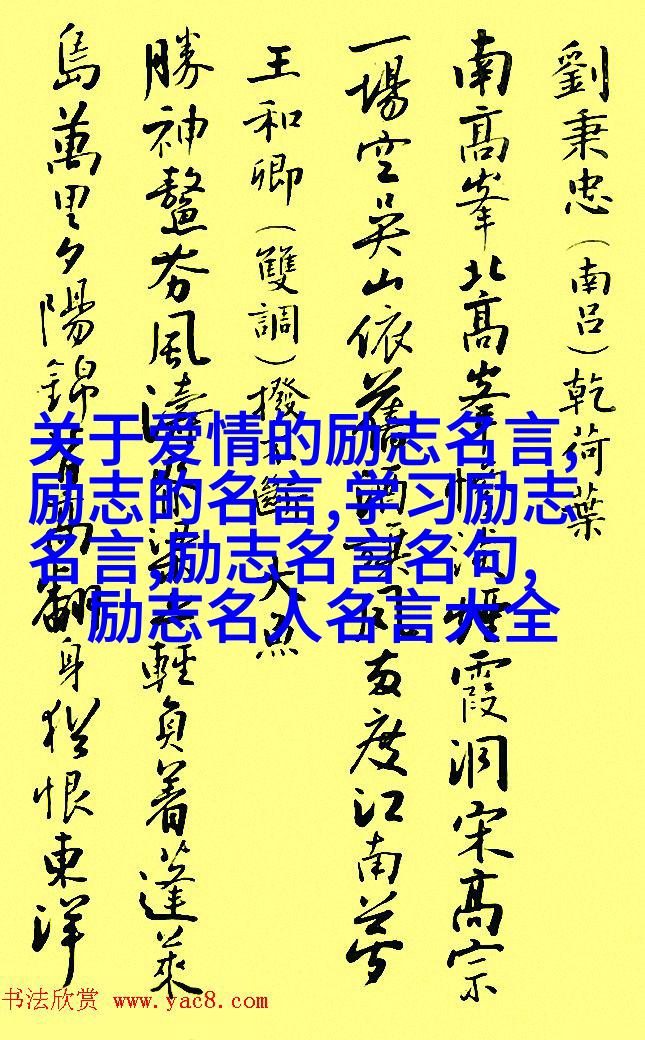 劉秉忠（南呂）乾荷葉
南高峯北高峯慘淡煙霞洞宋高宗
一場空吳山依舊酒旗風兩度江南夢
王和卿（雙調）撥不斷 大魚
勝神鰲夯風濤脊梁上輕負着蓬萊
島萬里夕陽錦背高翻身猶恨東洋
关于爱情的励志名言,
励志的名言,学习励志
名言,励志名言名句,
励志名人名言大全
书法欣赏 www.yac8.com